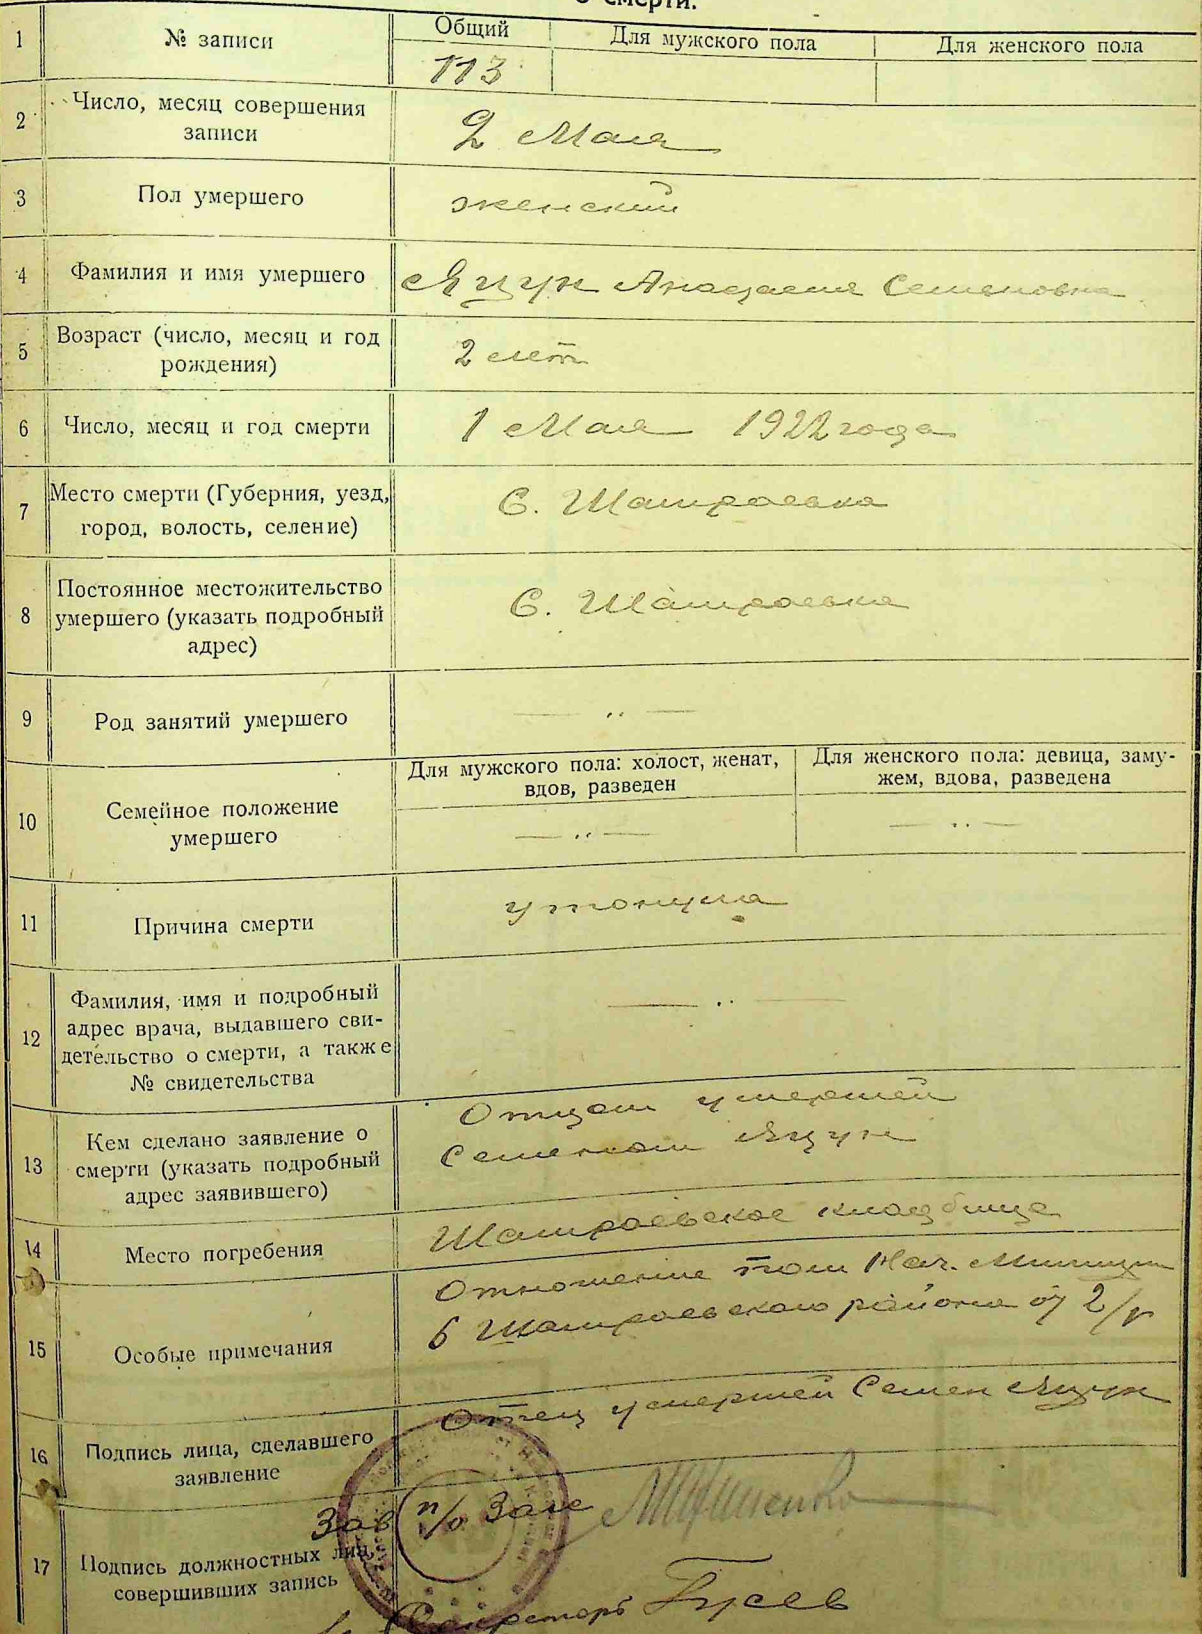 О смерти.
1 № записи Общий Для мужского пола Для женского пола
113
2 Число, месяц совершения
записи
2 Мая
3 Пол умершего женский
4 Фамилия и имя умершего Яцун Семеновна
5 Возраст (число, месяц и год
рождения)
2 лет
6 Число, месяц и год смерти 1 Мая 1922 года
7 Место смерти (Губерния, уезд,
город, волость, селение)
С. Шамраевка
8 Постоянное местожительство
умершего (указать подробный
адрес)
С. Шамраевка
9 Род занятий умершего — „ —
10 Семейное положение
умершего
Для мужского пола: холост, женат,
вдов, разведен
— „ —
Для женского пола: девица, заму-
жем, вдова, разведена
— „ —
11 Причина смерти утонула
12 Фамилия, имя и подробный
адрес врача, выдавшего сви-
детельство о смерти, а также
№ свидетельства
— „ —
13 Кем сделано заявление о
смерти (указать подробный
адрес заявившего)
Отцом умершей
Семеном Яцун
14 Место погребения Шамраевское кладбище
15 Особые примечания
Отношение Нач. Милиции
6 Шамраевского района от 2/V
16 Подпись лица, сделавшего
заявление
Отец умершей Семен Яцун
17 Подпись должностных лиц,
совершивших запись
Зав п/о Загс
Секретарь Гусев